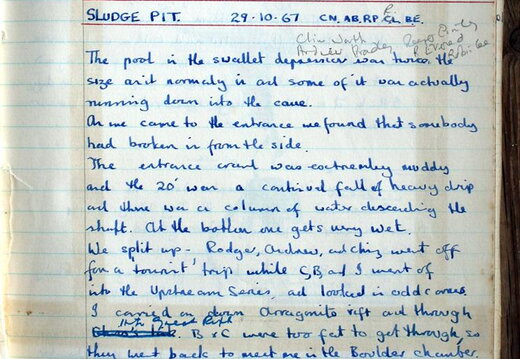 SLUDGE PIT. 29-10-67 CN, AB, RP, CL, BE.
Clive North Roger
Andrew
The pool in the swallet depression was twice the
size as it normaly is and some of it was actually
running down into the cave.
As we came to the entrance we found that somebody
had broken in from the side.
The entrance crawl was extremley muddy
and the 20' was a continual fall of heavy drip
and there was a column of water descending the
shaft. At the bottom one gets very wet.
We split up - Rodger, Andrew, and went off
for a tourist trip while and I went of
into the Upstream Series, and looked in odd corners
I carried on down Arragonite rift and through
into B & C were too fat to get through, so
they went back to meet me in the Boulder chamber.